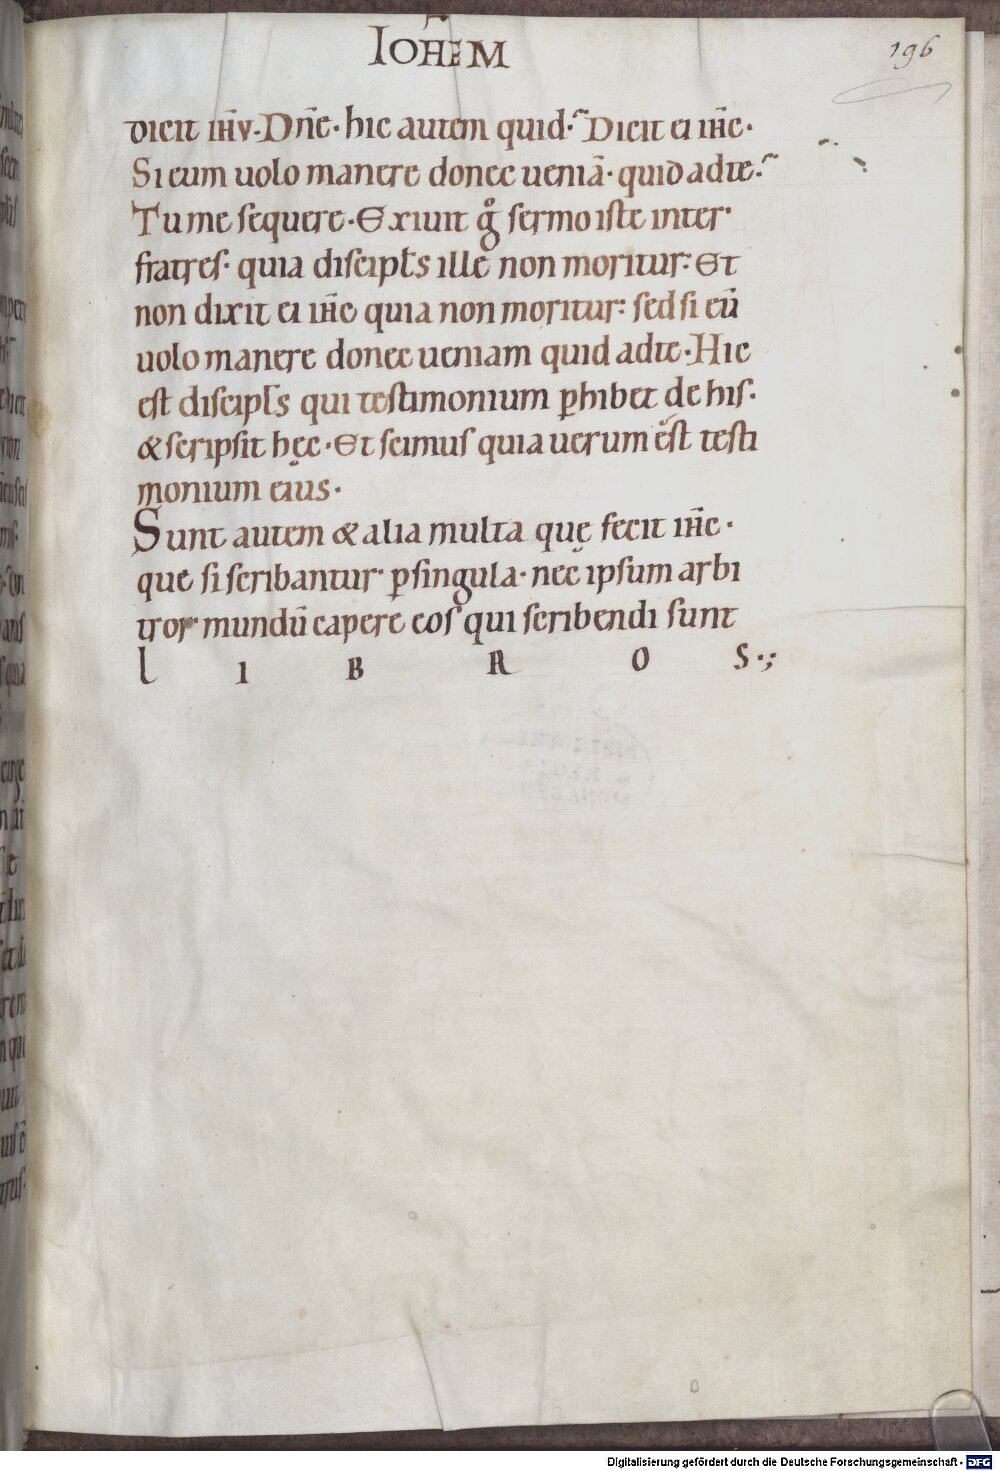 IOHEM
196
dicit ihv. Dn̄e. hic autem quid. Dicit ei ih̄c.
Si eum uolo manere donec uenia̅. quid ad te.
Tu me sequere. Exiuit gͦ sermo iste inter
fratres. quia discipłs ille non moritur. Et
non dixit ei ih̄c quia non moritur: sed si eū
uolo manere donec ueniam quid ad te. Hic
est discipłs qui testimonium ꝑhibet de his.
& scripsit hęc. Et scimus quia uerum est testi
monium eius.
Sunt autem & alia multa quę fecit ih̄c.
que si scribantur ꝑ singula. nec ipsum arbi
tror mundū capere eos qui scribendi sunt
L I B R O S.;
Digitalisierung gefördert durch die Deutsche Forschungsgemeinschaft - DFG